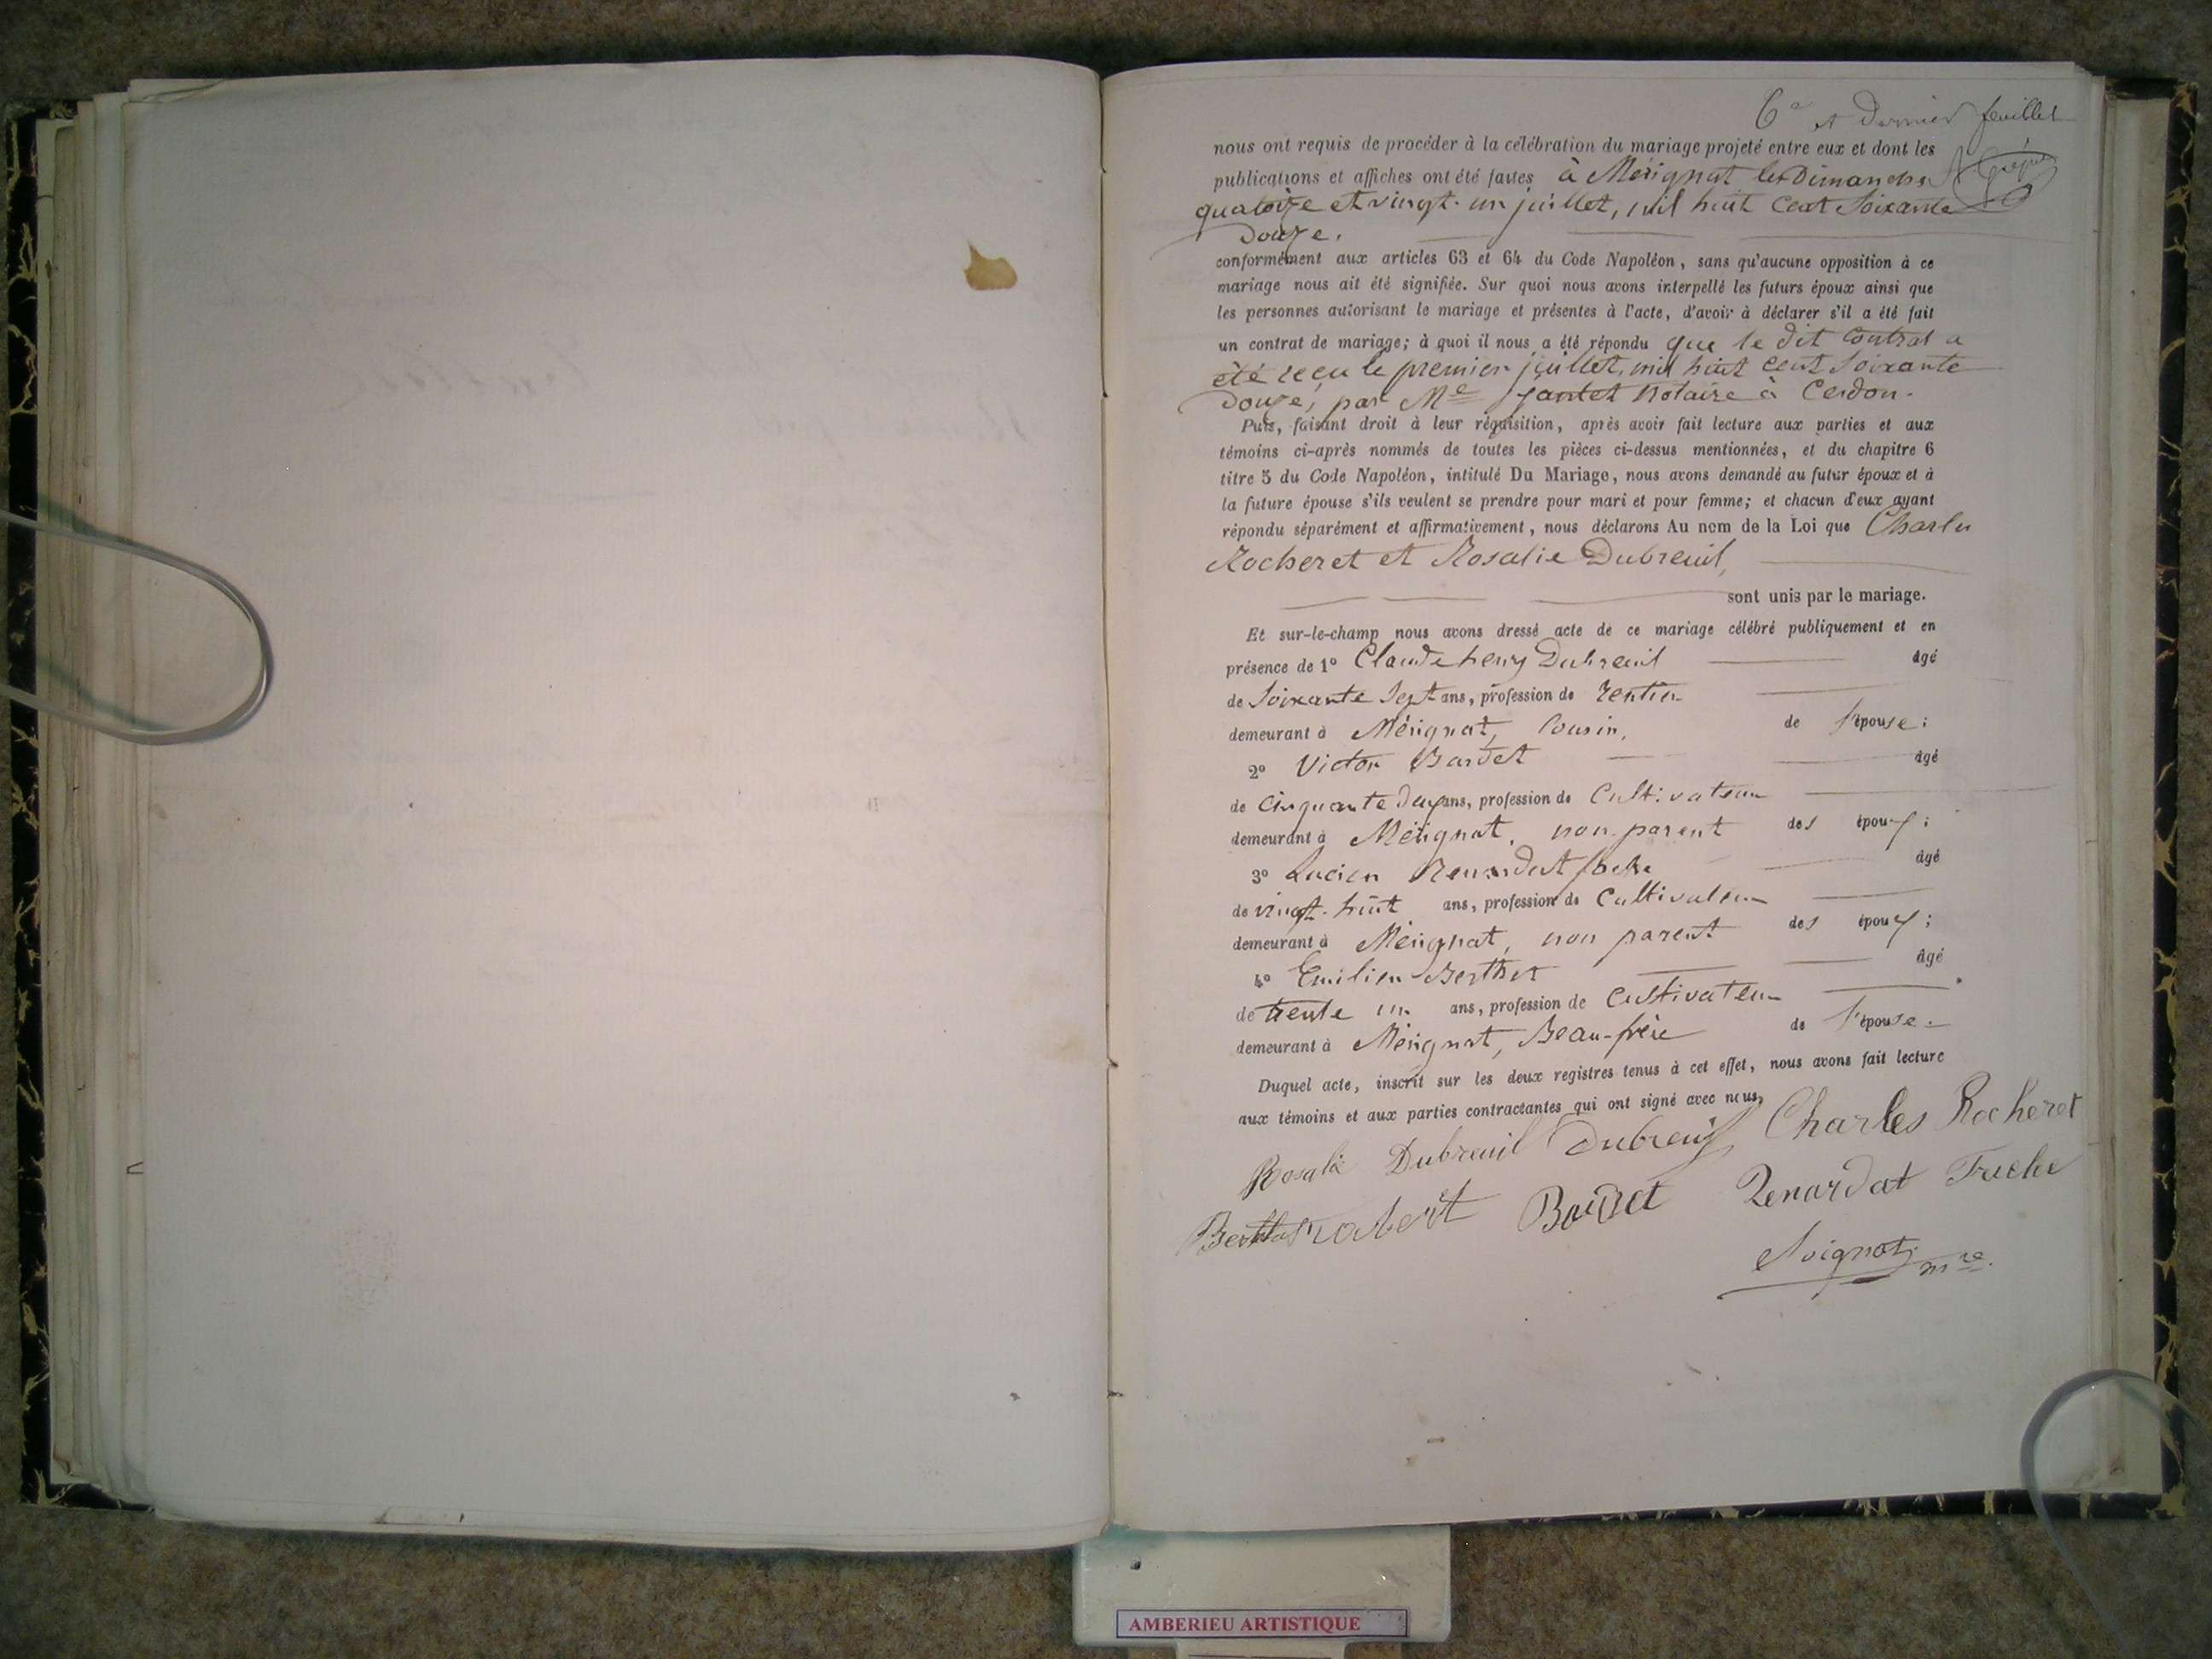 6e et Dernier feuillet
nous ont requis de procéder à la célébration du mariage projeté entre eux et dont les
publications et affiches ont été faites à Mérignat les Dimanches
quatorze et vingt-un juillet, mil huit cent soixante
Douze.
conformément aux articles 63 et 64 du Code Napoléon, sans qu'aucune opposition à ce
mariage nous ait été signifiée. Sur quoi nous avons interpellé les futurs époux ainsi que
les personnes autorisant le mariage et présentes à l'acte, d'avoir à déclarer s'il a été fait
un contrat de mariage; à quoi il nous a été répondu que le dit contrat a
été reçu le premier juillet, mil huit cent soixante
Douze, par Me Jantet Notaire à Cerdon.
Puis, faisant droit à leur réquisition, après avoir fait lecture aux parties et aux
témoins ci-après nommés de toutes les pièces ci-dessus mentionnées, et du chapitre 6
titre 5 du Code Napoléon, intitulé Du Mariage, nous avons demandé au futur époux et à
la future épouse s'ils veulent se prendre pour mari et pour femme; et chacun d'eux ayant
répondu séparément et affirmativement, nous déclarons Au nom de la Loi que Charles
Rocheret et Rosalie Dubreuil,
sont unis par le mariage.
Et sur-le-champ nous avons dressé acte de ce mariage célébré publiquement et en
présence de 1° Claude henry Dubreuil âgé
de Soixante Sept ans, profession de rentier
demeurant à Mérignat, Cousin, de l'épouse;
2° Victor Bardet âgé
de Cinquante deux ans, profession de Cultivateur
demeurant à Mérignat, non parent des époux;
3° Lucien Renardat âgé
de vingt-huit ans, profession de Cultivateur
demeurant à Mérignat, non parent des époux;
4° Emilien Berthet âgé
de trente un ans, profession de Cultivateur
demeurant à Mérignat, Beau-frère de l'épouse.
Duquel acte, inscrit sur les deux registres tenus à cet effet, nous avons fait lecture
aux témoins et aux parties contractantes qui ont signé avec nous,
Rosalie Dubreuil Dubreuil Charles Rocheret
Bardet Renardat
Soignat mre.
AMBERIEU ARTISTIQUE